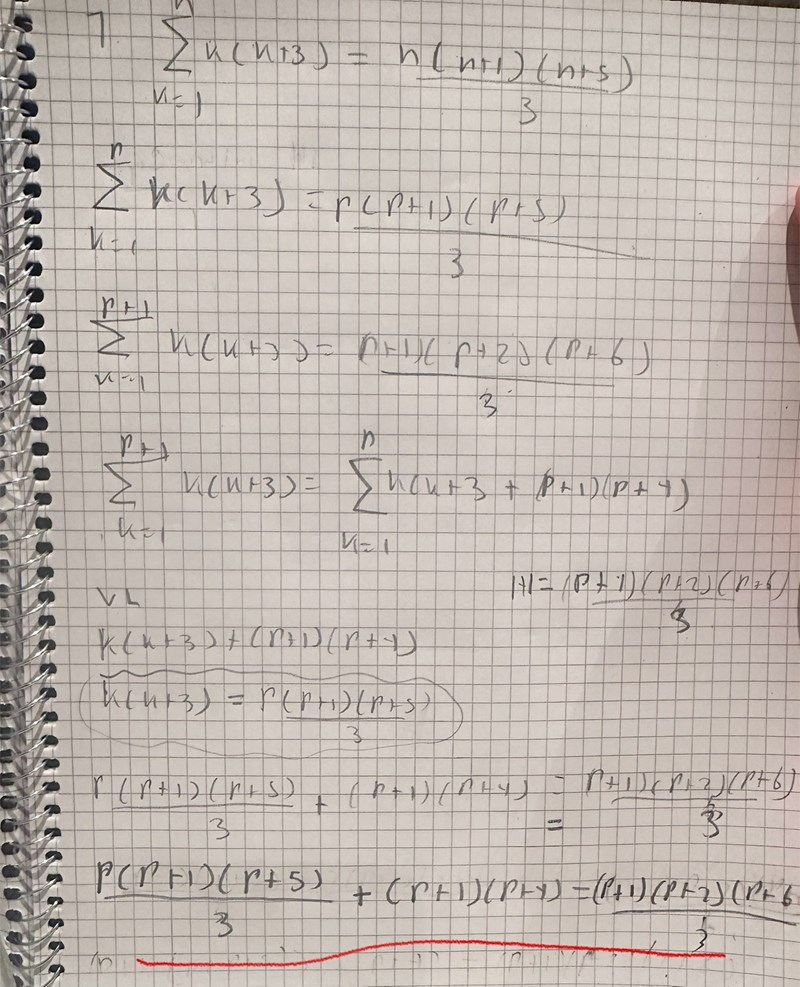 7 ∑_{k=1}^{n} k(k+3) = n(n+1)(n+5)/3
∑_{k=1}^{p} k(k+3) = p(p+1)(p+5)/3
∑_{k=1}^{p+1} k(k+3) = (p+1)(p+2)(p+6)/3
∑_{k=1}^{p+1} k(k+3) = ∑_{k=1}^{p} k(k+3 + (p+1)(p+4)
HL = (p+1)(p+2)(p+6)/3
VL
k(k+3) + (p+1)(p+4)
k(k+3) = p(p+1)(p+5)/3
p(p+1)(p+5)/3 + (p+1)(p+4) = (p+1)(p+2)(p+6)/3
=
p(p+1)(p+5)/3 + (p+1)(p+4) = (p+1)(p+2)(p+6)/3